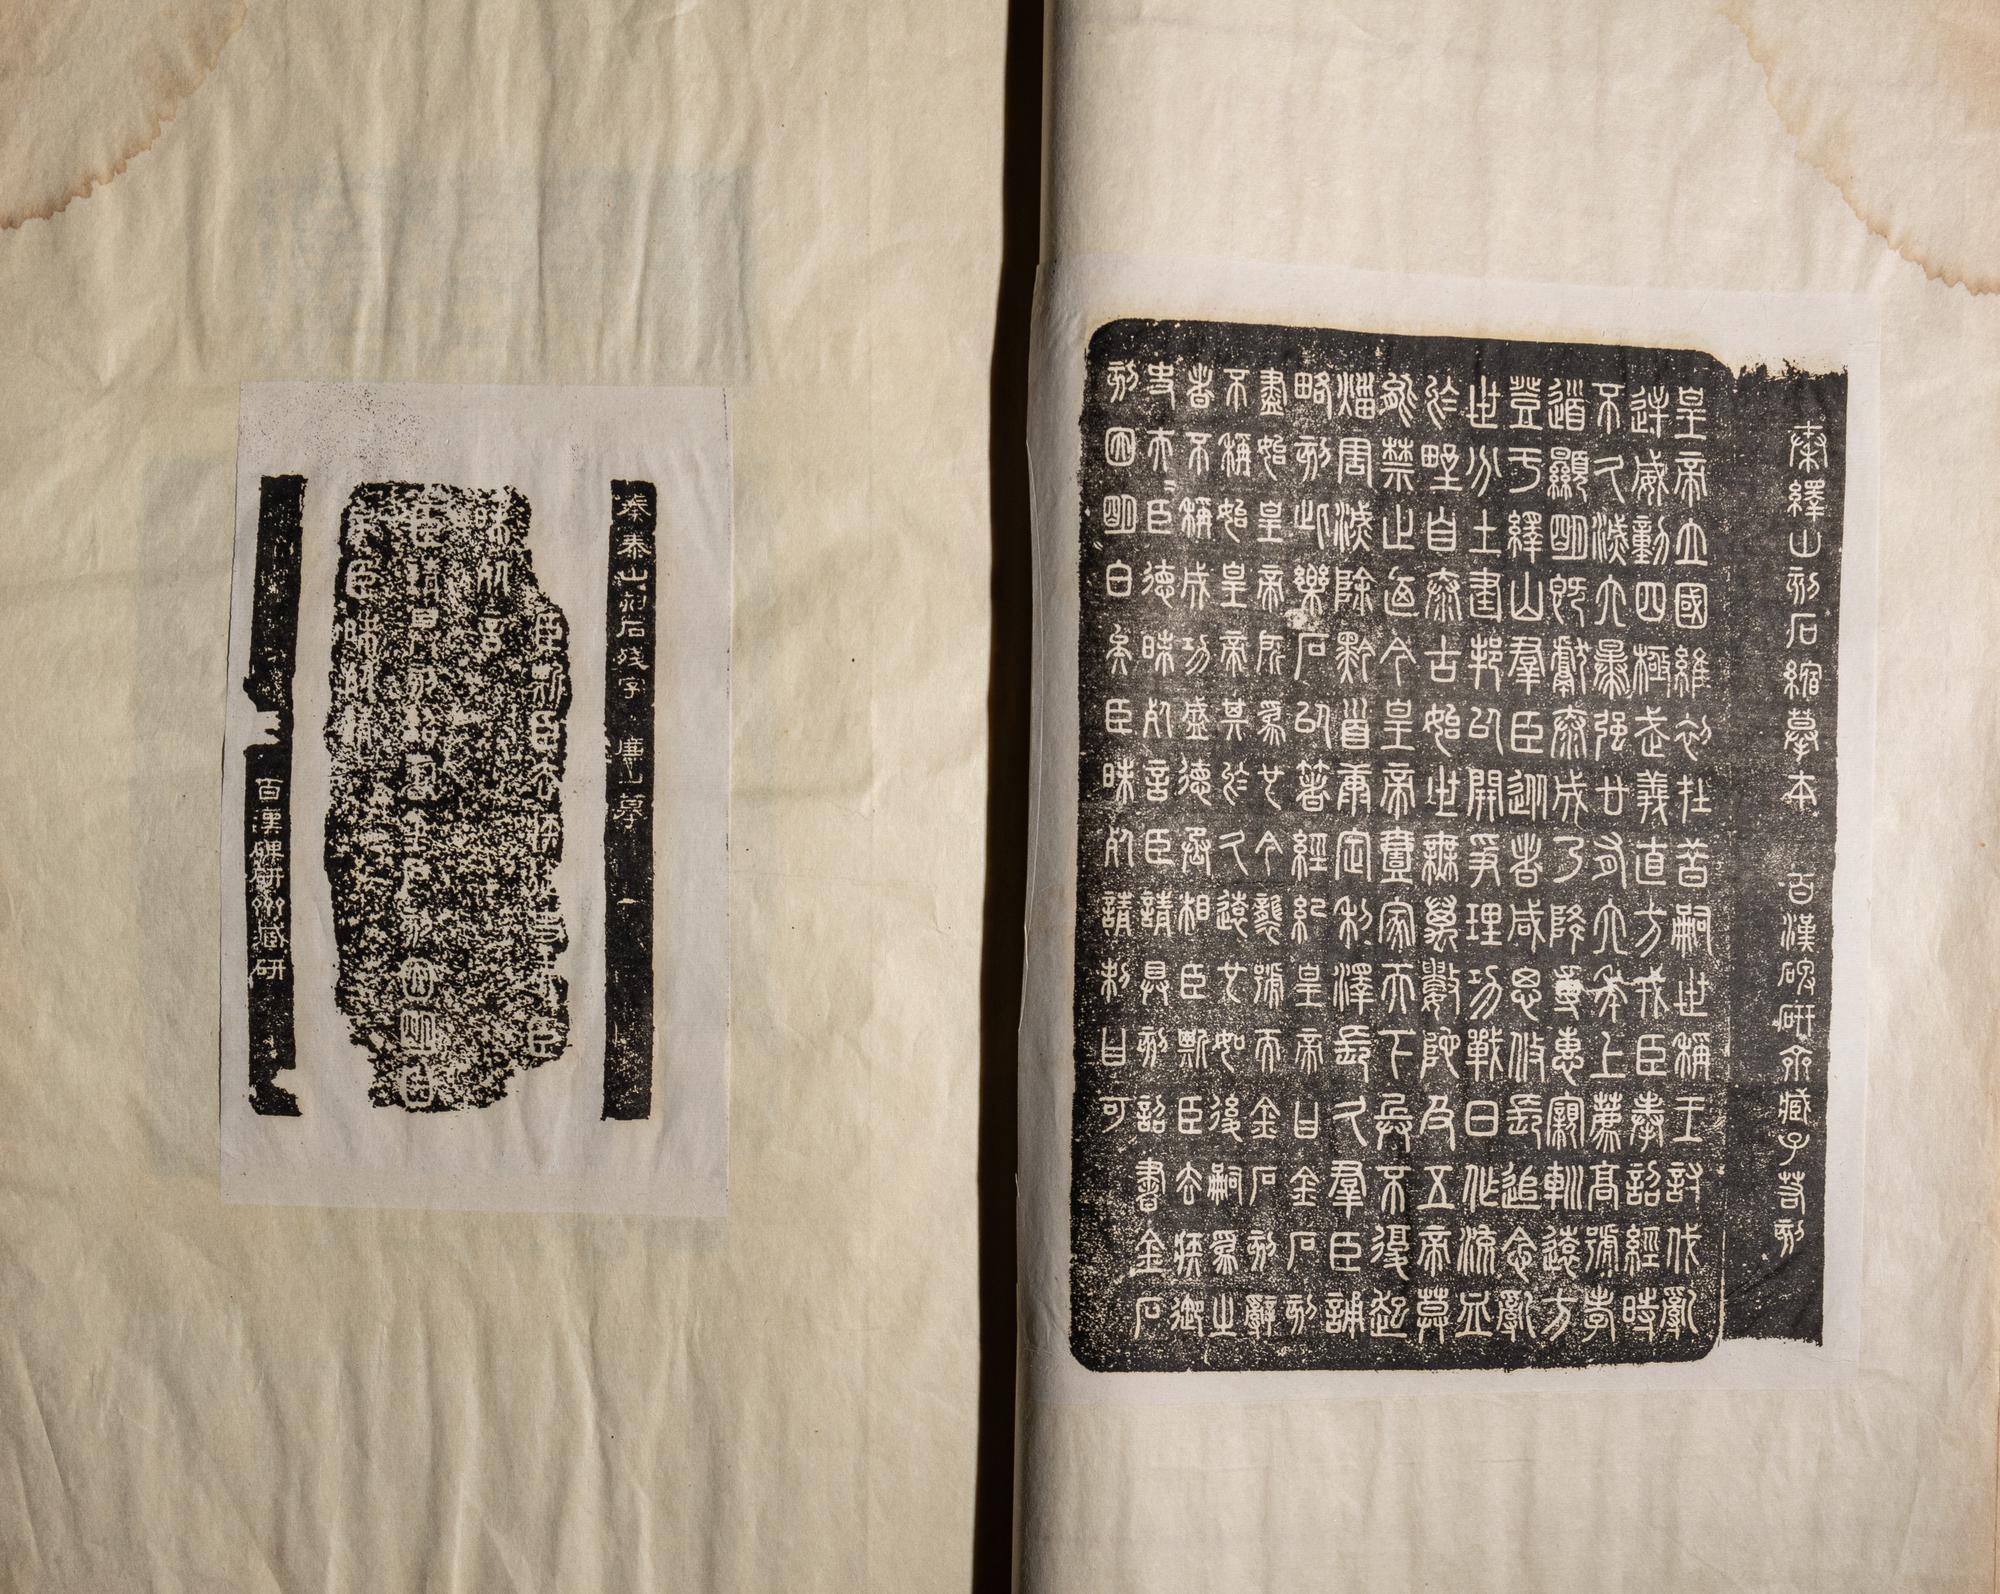 秦繹山刻石縮摹本 百漢碑研齋臧子刻
皇帝立國維初在昔嗣世稱王討伐亂
逆威動四極武義直方戎臣奉詔經時
不久滅六暴强廿有六年上薦高號孝
道顯明既獻泰成乃降專惠親巡遠方
登于繹山群臣從者咸思攸長追念亂
世分土建邦以開爭理功戰日作流血
於野自泰古始世無萬數陀及五帝莫
能禁止迺今皇帝壹家天下兵不復起
災害滅除黔首康定利澤長久群臣誦
略刻此樂石以著經紀皇帝曰金石刻
盡始皇帝所為也今襲號而金石刻辭
不稱始皇帝其於久遠也如後嗣為之
者不稱成功盛德丞相臣斯臣去疾御
史夫=臣德昧死言臣請具刻詔書金石
刻因明白矣臣昧死請制曰可
秦泰山刻石殘字 廉山摹 一
臣斯臣去疾御史夫=臣
昧死言
臣請具刻詔書金石刻因明白
矣臣昧死請
百漢碑研齋臧研